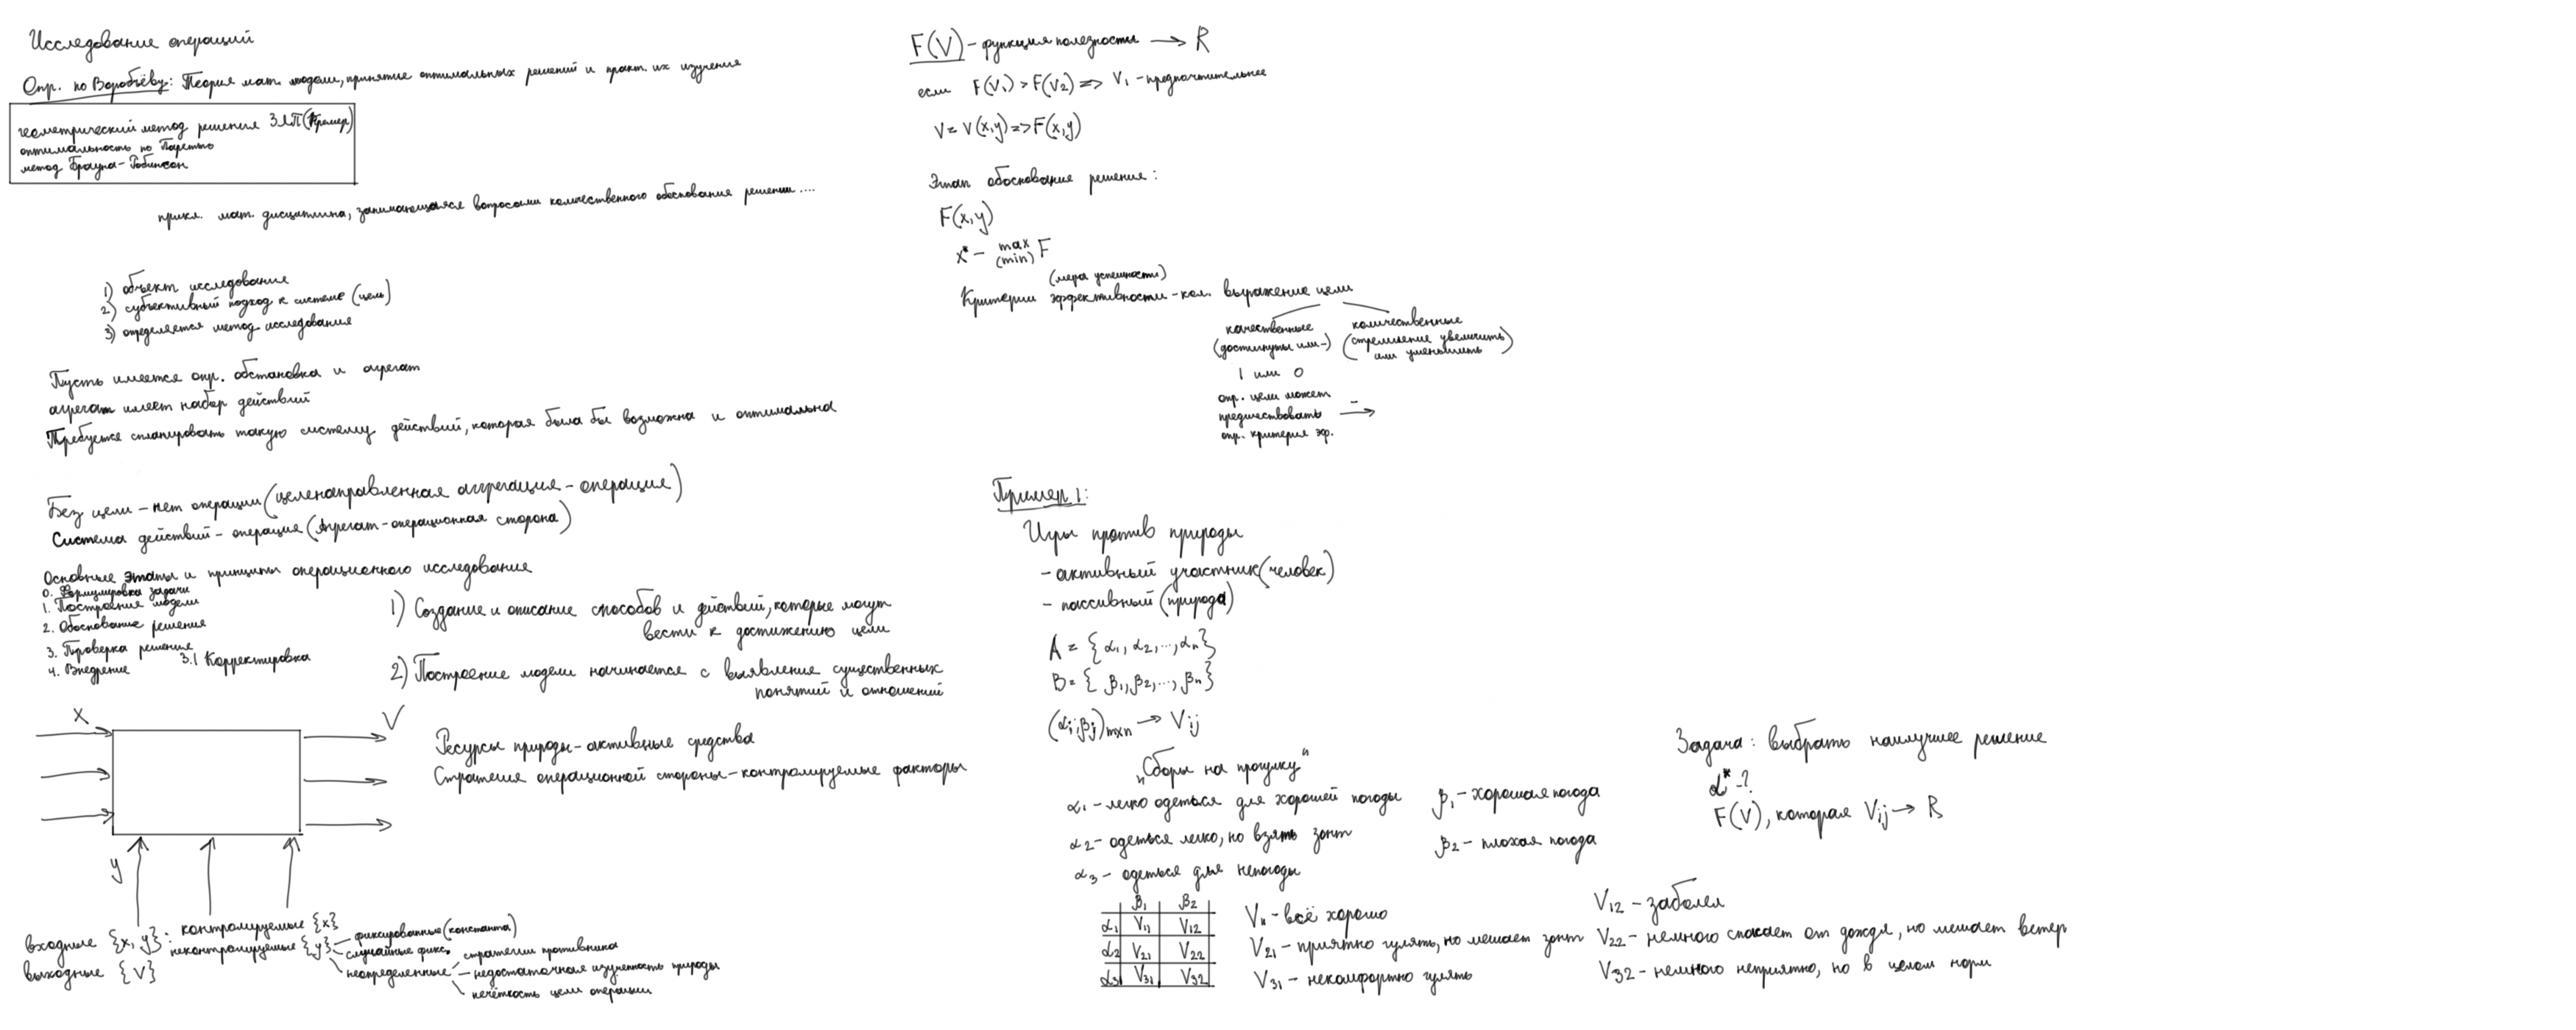 Исследование операций
Опр. по Воробьёву: Теория мат. модели, принятие оптимальных решений и практ. их изучения
геометрический метод решения ЗЛП (Кремер)
оптимальность по Паретто
метод Брауна-Робинсон
прикл. мат. дисциплина, занимающаяся вопросами количественного обоснования решении....
1) объект исследования
2) субъективный подход к системе (цель)
3) определяется метод исследования
Пусть имеется опр. обстановка и агрегат
агрегат имеет набор действий
Требуется спланировать такую систему действий, которая была бы возможна и оптимальна
Без цели - нет операции (целенаправленная аггрегация - операция)
Система действий - операция (Агрегат-операционная сторона)
Основные этапы и принципы операционного исследования
0. Формулировка задачи
1. Построение модели
2. Обоснование решения
3. Проверка решения
3.1 Корректировка
4. Внедрение
1) Создание и описание способов и действий, которые могут
вести к достижению цели
2) Построение модели начинается с выявления существенных
понятий и отношений
x
V
y
Ресурсы природы - активные средства
Стратегия операционной стороны - контролируемые факторы
входные {x, y}: контролируемые {x}
неконтролируемые {y}
фиксированные (константа)
случайные фикс.
неопределенные
стратегии противника
недостаточная изученность природы
нечёткость цели операции
выходные {V}
F(V) - функция полезности → R
если F(V₁) > F(V₂) => V₁ - предпочтительнее
V = V(x,y) => F(x,y)
Этап обоснование решения:
F(x,y)
x* - max F
(min)
(мера успешности)
Критерии эффективности - кол. выражение цели
качественные
(достигнуты или -)
1 или 0
опр. цели может
предшествовать
опр. критерия эф.
количественные
(стремление увеличить
или уменьшить)
Пример 1:
Игры против природы
- активный участник (человек)
- пассивный (природа)
A = {α₁, α₂, ..., αₙ}
B = {β₁, β₂, ..., βₙ}
(αᵢ, βⱼ)ₘₓₙ → Vᵢⱼ
„Сборы на прогулку"
α₁ - легко одеться для хорошей погоды
α₂ - одеться легко, но взять зонт
α₃ - одеться для непогоды
β₁ - хорошая погода
β₂ - плохая погода
β₁ β₂
α₁ V₁₁ V₁₂
α₂ V₂₁ V₂₂
α₃ V₃₁ V₃₂
V₁₁ - всё хорошо
V₂₁ - приятно гулять, но мешает зонт
V₃₁ - некомфортно гулять
V₁₂ - заболел
V₂₂ - немного спасает от дождя, но мешает ветер
V₃₂ - немного неприятно, но в целом норм
Задача: выбрать наилучшее решение
α* - ?
F(V), которая Vᵢⱼ → R